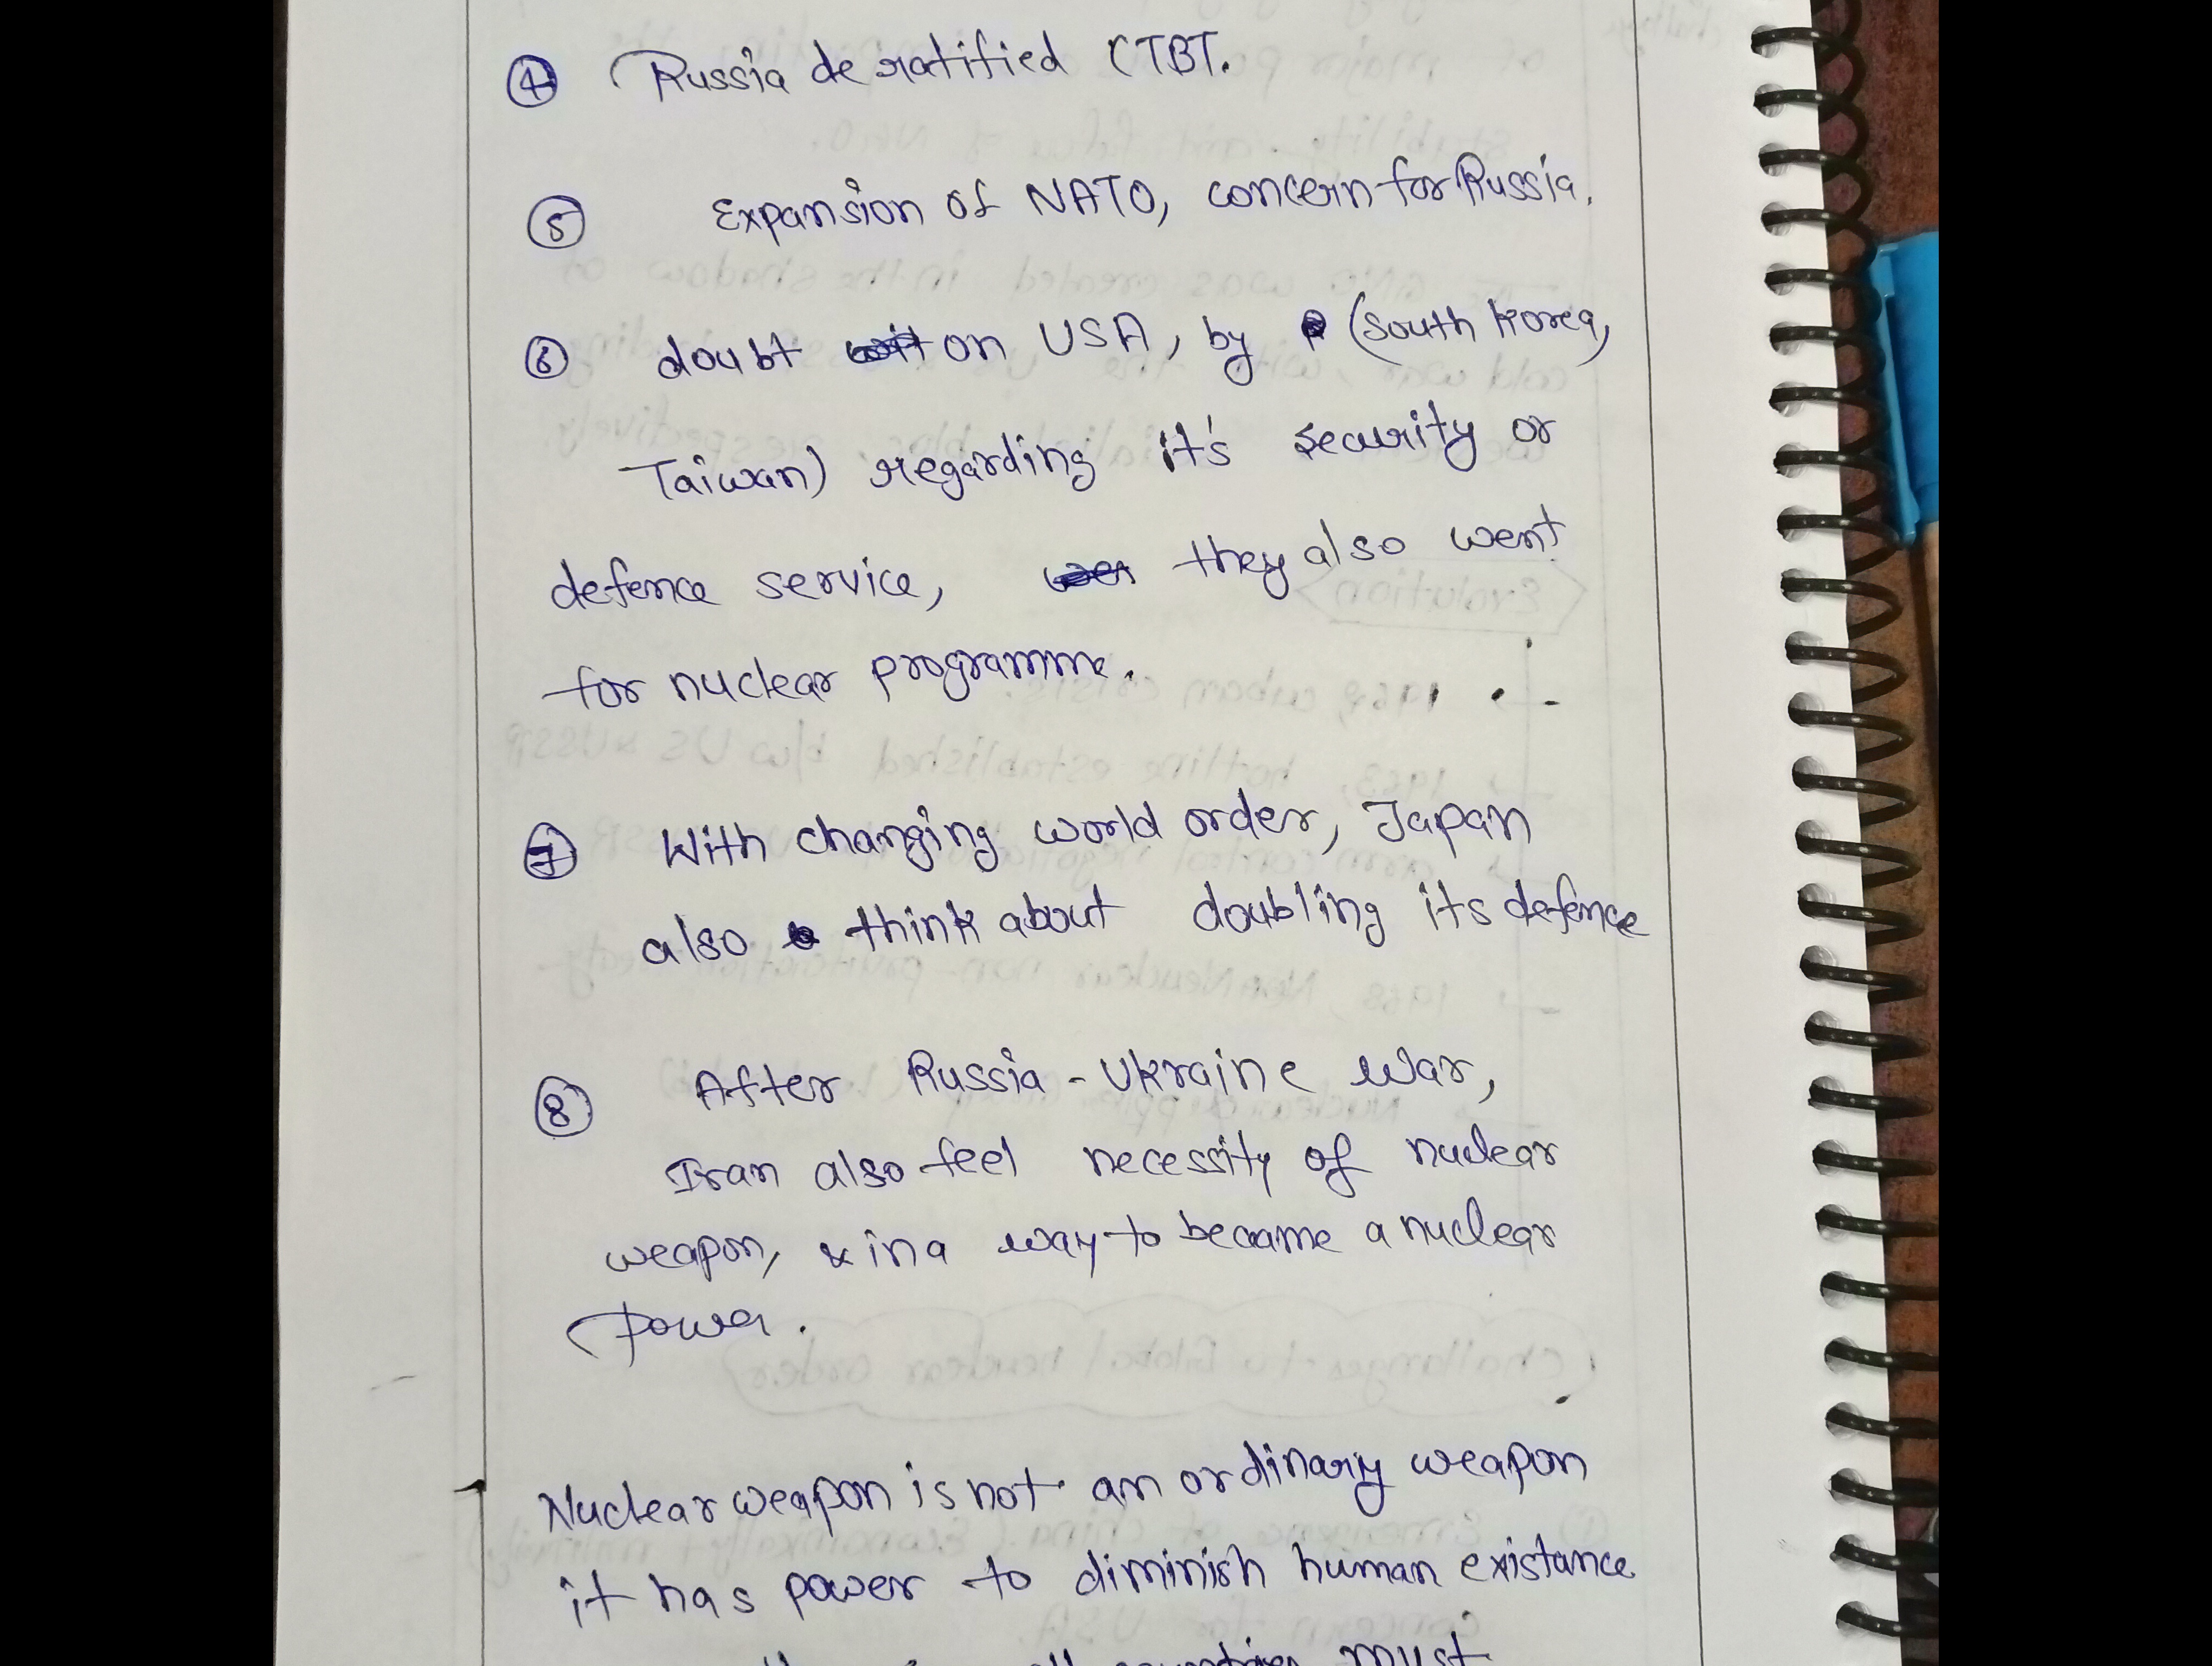 ④ Russia de ratified CTBT.
⑤ Expansion of NATO, concern for Russia.
⑥ doubt on USA, by (South Korea,
Taiwan) regarding it's security or
defence service, they also went
for nuclear programme.
⑦ With changing world order, Japan
also think about doubling its defence
⑧ After Russia - Ukraine war,
Iran also feel necessity of nuclear
weapon, & in a way to became a nuclear
power.
Nuclear weapon is not an ordinary weapon
it has power to diminish human existance
countries must